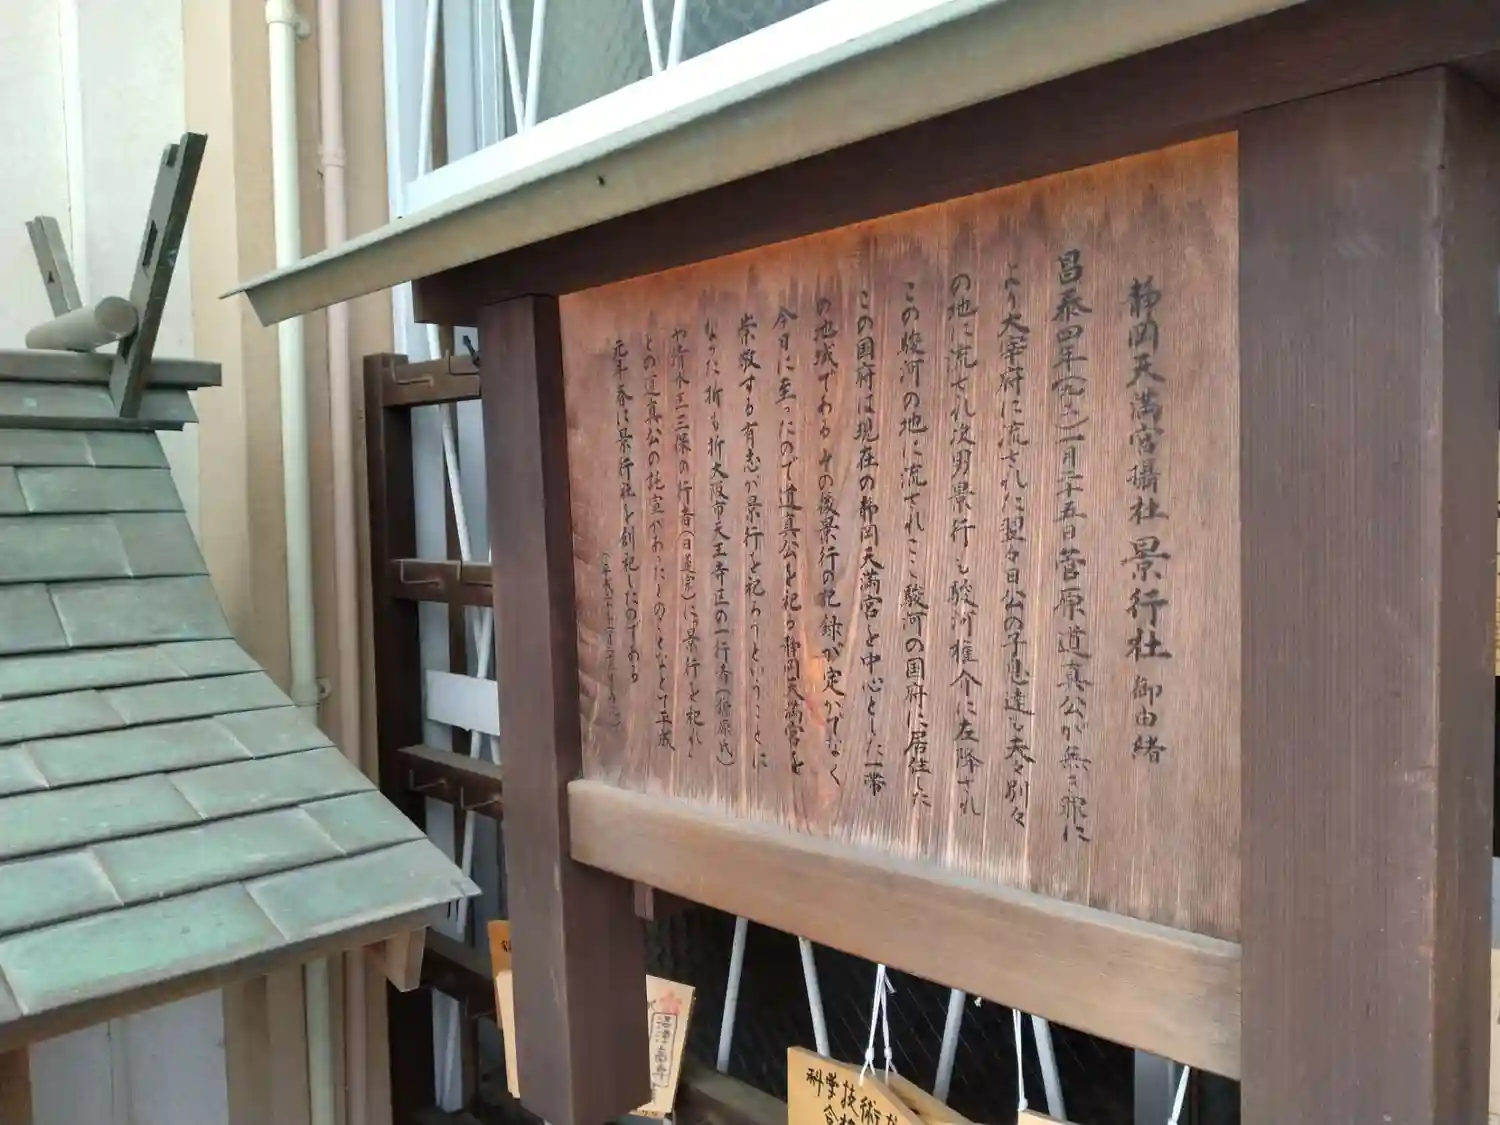 静岡天満宮攝社 景行社 御由緒
昌泰四年(九〇一)一月二十五日菅原道真公が無き罪に
より大宰府に流された翌々日公の子息達も夫々別々
の地に流され次男景行も駿河権介に左降され
この駿河の地に流されここ駿河の国府に居住した
この国府は現在の静岡天満宮を中心とした一帯
の地域であるその後景行の記録が定かでなく
今日に至ったので道真公を祀る静岡天満宮を
崇敬する有志が景行を祀ろうということに
なった折も折大阪市天王寺区の一行者(藤原氏)
や清水三保の行者(日蓮宗)に景行を祀れ
との道真公の託宣があったとのことなどで平成
元年春に景行社を創祀したのである
科学技術